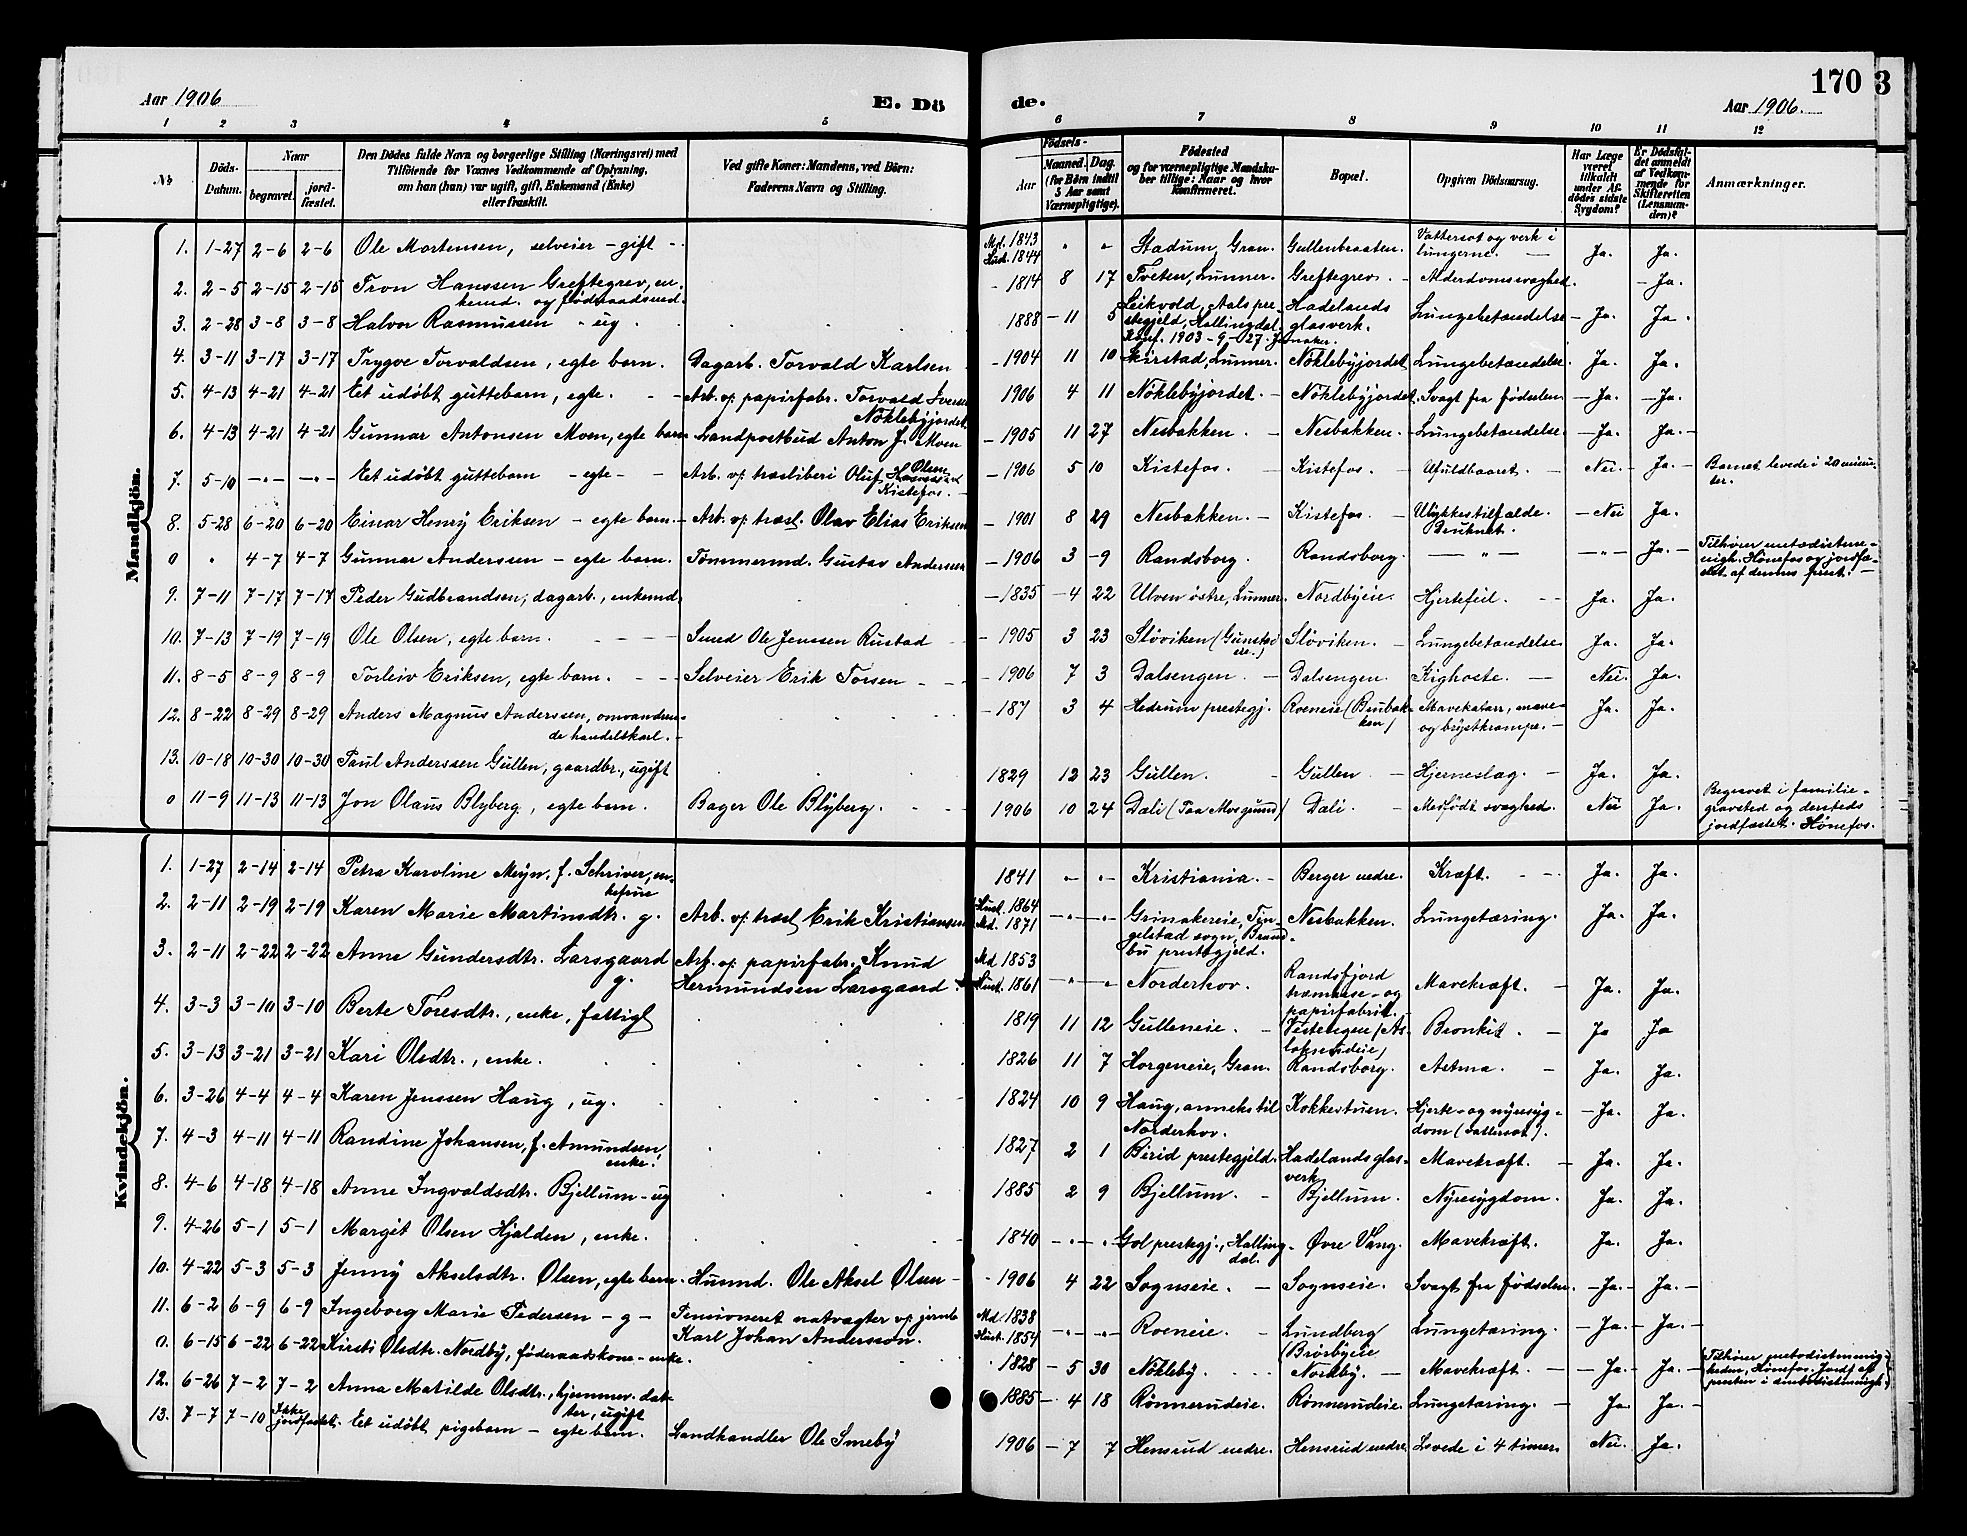 Aar 1906
E. Dö
de.
Aar 1906.
170
3
1 2 3 4 5 6 7 8 9 10 11 12
No
Döds-Datum.
Naar begravet. jordfæstet.
Den Dödes fulde Navn og borgerlige Stilling (Næringsvei) med
Tilföiende for Voxnes Vedkommende af Oplysning,
om han (hun) var ugift, gift, Enkemand (Enke)
eller fraskilt.
Ved gifte Koner: Mandens, ved Börn:
Faderens Navn og Stilling.
Födsels-
Aar Maaned. Dag.
(for Börn indtil
5 Aar samt
Værnepligtige).
Födested
og for værnepligtige Mandskaber tillige: Naar og hvor
Konfirmeret.
Bopæl.
Opgiven Dödsaarsag.
Har Læge været tilkaldt under Afdödes sidste Sygdom?
Er Dödsfaldet anmeldt af Vedkommende for Skifteretten (Lensmanden)?
Anmærkninger.
Mandkjön.
1. 1-27 2-6 2-6 Ole Mortensen, selveier - gift - Md. 1843 Hust. 1844 " " Stadum, Gran. Gullenbraaten. Vattersot og verk i lungerne. Ja. Ja.
2. 2-5 2-15 2-15 Tron Hanssen Greftegrev, enkemd. og föderaadsmd. 1814 8 17 Tveten, Lunner. Greftegrev - Alderdomssvaghed. - Ja.
3. 2-28 3-8 3-8 Halvor Rasmussen - ug. 1888 - 11 5 Leikvold, Aals prestegjeld, Hallingdal. Konf. 1903-9-27. Jevnaker. Hadelands glasverk. Lungebetændelse - Ja. Ja.
4. 3-11 3-17 3-17 Trygve Torvaldsen, egte barn. Dagarb. Torvald Karlsen - 1904 11 10 Skirstad, Lunner. Nöklebyjordet. Lungebetændelse. Ja. Ja.
5. 4-13 4-21 4-21 Et udöbt guttebarn, egte. - - Arb. v/ papirfabr. Torvald Iversen Nöklebyjordet 1906 4 11 Nöklebyjordet. - Nöklebyjordet. Svagt fra födselen - Ja. - Ja.
6. 4-13 4-21 4-21 Gunnar Antonsen Moen, egte barn Landpostbud Anton J. Moen - 1905 11 27 Nesbakken. - Nesbakken. - Lungebetændelse. - Ja. Ja. -
7. 5-10 -"- -"- Et udöbt guttebarn - egte - Arb. v/ træsliberi Oluf Olsen Kistefos. - 1906 5 10 Kistefos. - Kistefos. - Ufuldbaaret. - Nei - Ja. - Barnet levede i 20 minutter.
8. 5-28 6-20 6-20 Einar Henry Eriksen - egte barn. - Arb. v/ træsl. Olav Elias Eriksen - 1901 8 29 Nesbakken. - Kistefos - Ulykkestilfælde. Druknet. - Nei Ja.
0 " 4-7 4-7 Gunnar Anderssen - egte barn. Tömmermd. Gustav Anderssen - 1906 3 -9 Randsborg. Randsborg. - " - - " - Ja. - Tilhörer metodistmenigh. Hönefos og jordfæstet af dennes prest. -
9. 7-11 7-17 7-17 Peder Gudbrandsen, dagarb., enkemd. - 1835 - 4 22 Ulven östre, Lunner. Nordbyeie. Hjertefeil. - - Ja. Ja.
10. 7-13 7-19 7-19 Ole Olsen, egte barn. - - - Smed Ole Jenssen Rustad - 1905 3 23 Slöviken (Gunstadeie.) Slöviken. - Lungebetændelse Ja. Ja.
11. 8-5 8-9 8-9 Torleiv Eriksen, egte barn. - - Selveier Erik Torsen - - - 1906 7 3 Dalsengen. - Dalsengen. Kighoste. - Nei. Ja.
12. 8-22 8-29 8-29 Anders Magnus Anderssen, omvandrende handelskarl. - - 187 3 4 Hedrum prestegj. Roeneie (Brubakken) Mavekatarr, mave- og brystkrampe. - Ja. Ja.
13. 10-18 10-30 10-30 Paul Anderssen Gullen, gaardbr., ugift 1829 12 23 Gullen. - Gullen - Hjerneslag. - Ja. Ja.
0 11-9 11-13 11-13 Jon Olaus Blyberg, egte barn. Bager Ole Blyberg. - - 1906 10 24 Dæli (Paa Moegrund) Dæli. - Medfödt svaghed. Nei Ja. Begravet i familiegravsted og dersteds jordfæstet. Hönefos.
Kvindekjön.
1. 1-27 2-14 2-14 Petra Karoline Meyn, f. Schriver, enkefrue 1841 " " Kristiania. - Berger nedre. Kræft. - - Ja. Ja.
2. 2-11 2-19 2-19 Karen Marie Martinsdtr. g. Arb. v/ træsl Erik Kristiansen Hust. 1864 Md. 1871 -"- -"- Grinakereie, Tingelstad sogn, Brandbu prestegjeld. Nesbakken. Lungetæring. Ja. Ja.
3. 2-11 2-22 2-22 Anne Gundersdtr. Larsgaard g. Arb. v/ papirfabr. Knud Hermundsen Larsgaard Md 1853 Hust. 1861 -"- " Norderhov. Randsfjord træmasse- og papirfabrik. Mavekræft. - Ja. Ja.
4. 3-3 3-10 3-10 Berte Toresdtr., enke, fattigl 1819 11 12 Gulleneie. - Vestengen (Aslaksrudeie) Bronkit. - Ja Ja
5. 3-13 3-21 3-21 Kari Olsdtr., enke. 1826 11 7 Horgeneie, Gran. Randsborg. Astma. - Ja. Ja.
6. 3-26 4-4 4-4 Karen Jenssen Haug, ug. 1824 10 9 Haug, anneks til Norderhov. Kokkestuen. Hjerte- og nyresygdom (Vattersot). - Ja. Ja.
7. 4-3 4-11 4-11 Randine Johansen, f. Amundsen, enke. 1827 2 1 Birid prestegjeld. Hadelands glasverk Mavekræft. - Ja. Ja.
8. 4-6 4-18 4-18 Anne Ingvaldsdtr. Bjellum - ug 1885 2 9 Bjellum. - Bjellum. Nyresygdom. Ja. Ja.
9. 4-26 5-1 5-1 Margit Olsen Hjalden, enke. 1840 -"- " Gol prestegj., Hallingdal. Øvre Vang. Mavekræft. Ja. Ja.
10. 4-22 5-3 5-3 Jenny Akselsdtr. Olsen, egte barn. Husmd. Ole Aksel Olsen - - 1906 4 22 Sognseie. - Sognseie. Svagt fra födselen. - Ja. - Ja. -
11. 6-2 6-9 6-9 Ingeborg Marie Pedersen - g - Pensioneret natvagter v/ jernb Karl Johan Andersson. Md 1838 Hust. 1854 -"- -"- Roeneie. - Lundberg (Brörbyeie Lungetæring. - Ja. - Ja. -
0. 6-15 6-22 6-22 Kirsti Olsdtr. Nordby, föderaadskone - enke. 1828 - 5 30 Nökleby. Nordby. - Mavekræft. - - Ja. Ja. - (Tilhörer metodistmenigheden, Hönefos. Jordf. af presten i metodistmenigh.)
12. 6-26 7-2 7-2 Anna Matilde Olsdtr., hjemmev. datter, ugift - 1885 - 4 18 Rönnerudeie. Rönnerudeie. Lungetæring. - Ja. Ja. -
13. 7-7 7-10 Ikke jordfæstet. Et udöbt pigebarn - egte barn. Landhandler Ole Smeby 1906 - 7 7 Hensrud nedre. Hensrud nedre. Levede i 4 timer. Nei. Ja.